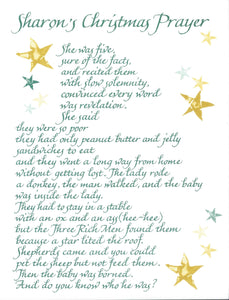 Sharon's Christmas Prayer
She was five,
sure of the facts,
and recited them
with slow solemnity,
convinced every word
was revelation.
She said
they were so poor
they had only peanut butter and jelly
sandwiches to eat
and they went a long way from home
without getting lost. The lady rode
a donkey, the man walked, and the baby
was inside the lady.
They had to stay in a stable
with an ox and an ass (hee-hee)
but the Three Rich Men found them
because a star lited the roof.
Shepherds came and you could
pet the sheep but not feed them.
Then the baby was borned.
And do you know who he was?